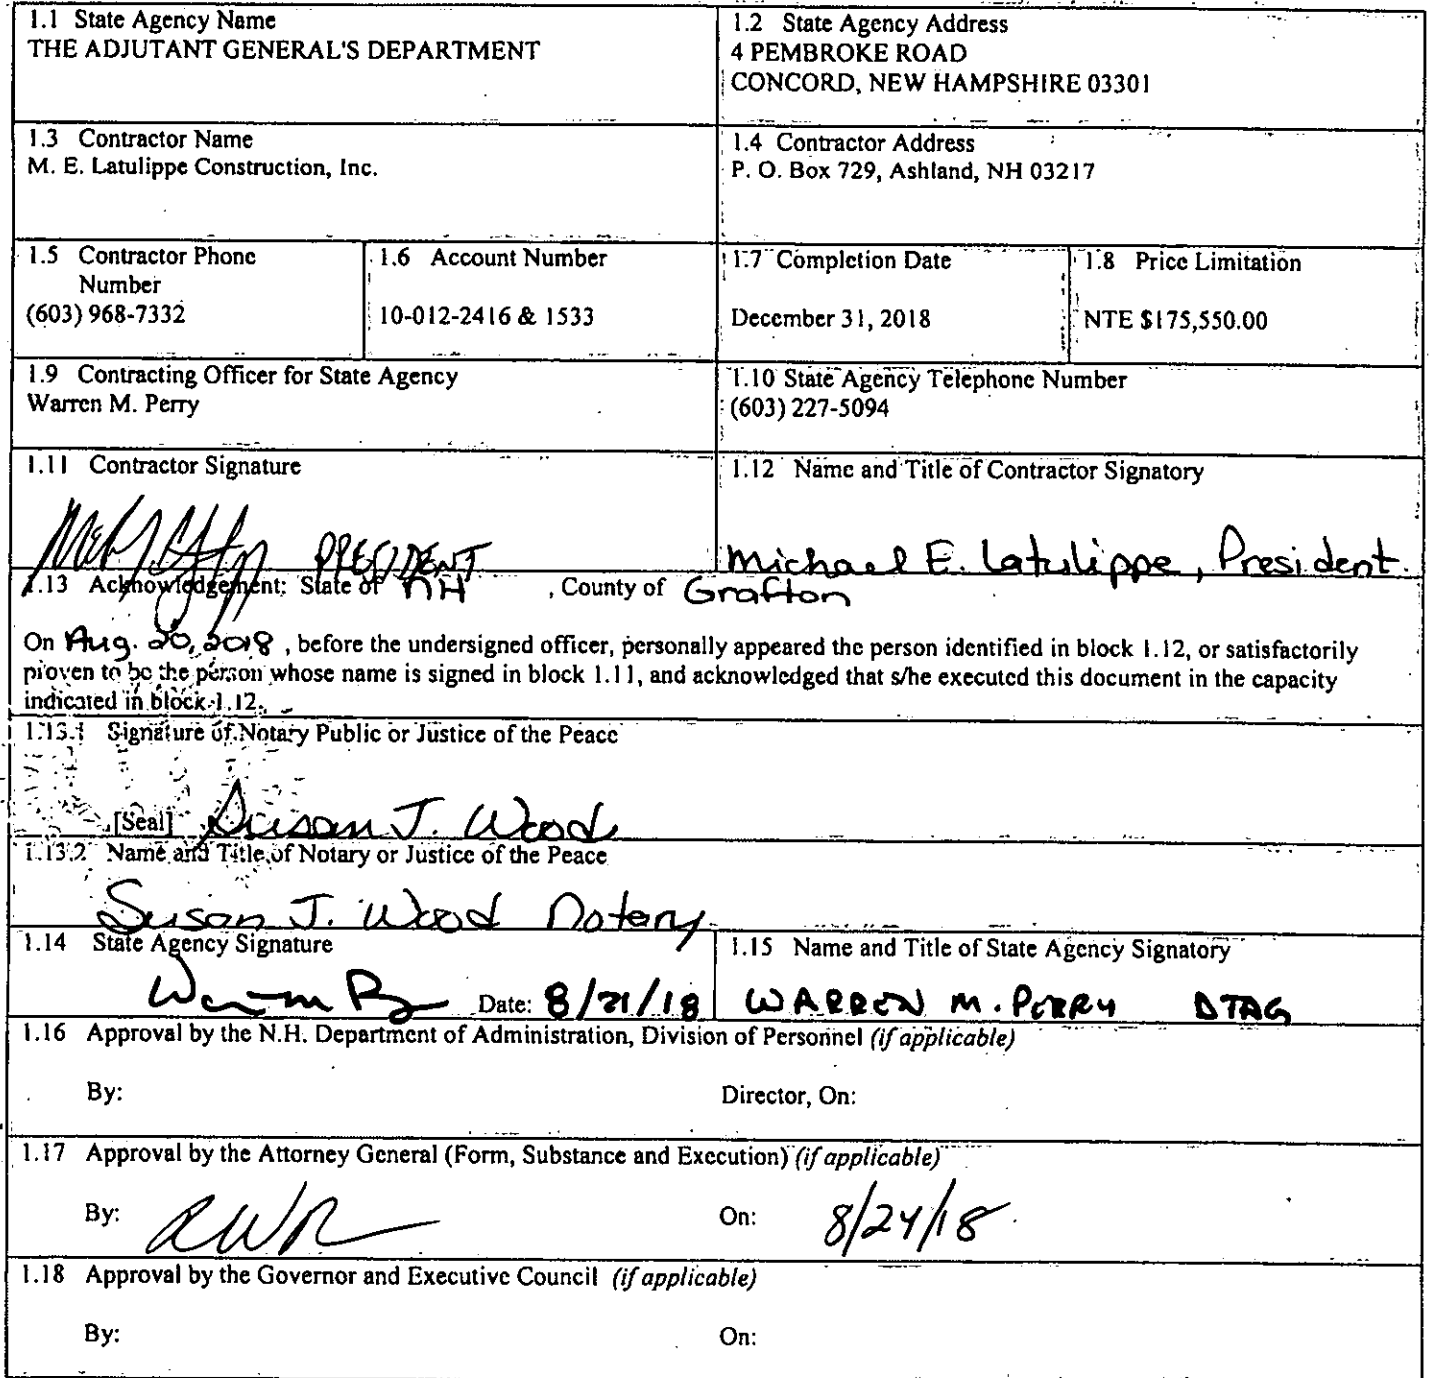 1.1 State Agency Name
THE ADJUTANT GENERAL'S DEPARTMENT
1.2 State Agency Address
4 PEMBROKE ROAD
CONCORD, NEW HAMPSHIRE 03301
1.3 Contractor Name
M. E. Latulippe Construction, Inc.
1.4 Contractor Address
P. O. Box 729, Ashland, NH 03217
1.5 Contractor Phone
Number
(603) 968-7332
1.6 Account Number
10-012-2416 & 1533
1.7 Completion Date
December 31, 2018
1.8 Price Limitation
NTE $175,550.00
1.9 Contracting Officer for State Agency
Warren M. Perry
1.10 State Agency Telephone Number
(603) 227-5094
1.11 Contractor Signature
PRESIDENT
1.12 Name and Title of Contractor Signatory
Michael E. Latulippe, President.
1.13 Acknowledgement: State of NH , County of Grafton
On Aug. 20, 2018 , before the undersigned officer, personally appeared the person identified in block 1.12, or satisfactorily
proven to be the person whose name is signed in block 1.11, and acknowledged that s/he executed this document in the capacity
indicated in block 1.12.
1.13.1 Signature of Notary Public or Justice of the Peace
[Seal] Susan J. Wood
1.13.2 Name and Title of Notary or Justice of the Peace
Susan J. Wood Notary
1.14 State Agency Signature
Date: 8/21/18
1.15 Name and Title of State Agency Signatory
WARREN M. PERRY DTAG
1.16 Approval by the N.H. Department of Administration, Division of Personnel (if applicable)
By: Director, On:
1.17 Approval by the Attorney General (Form, Substance and Execution) (if applicable)
By: On: 8/24/18
1.18 Approval by the Governor and Executive Council (if applicable)
By: On: